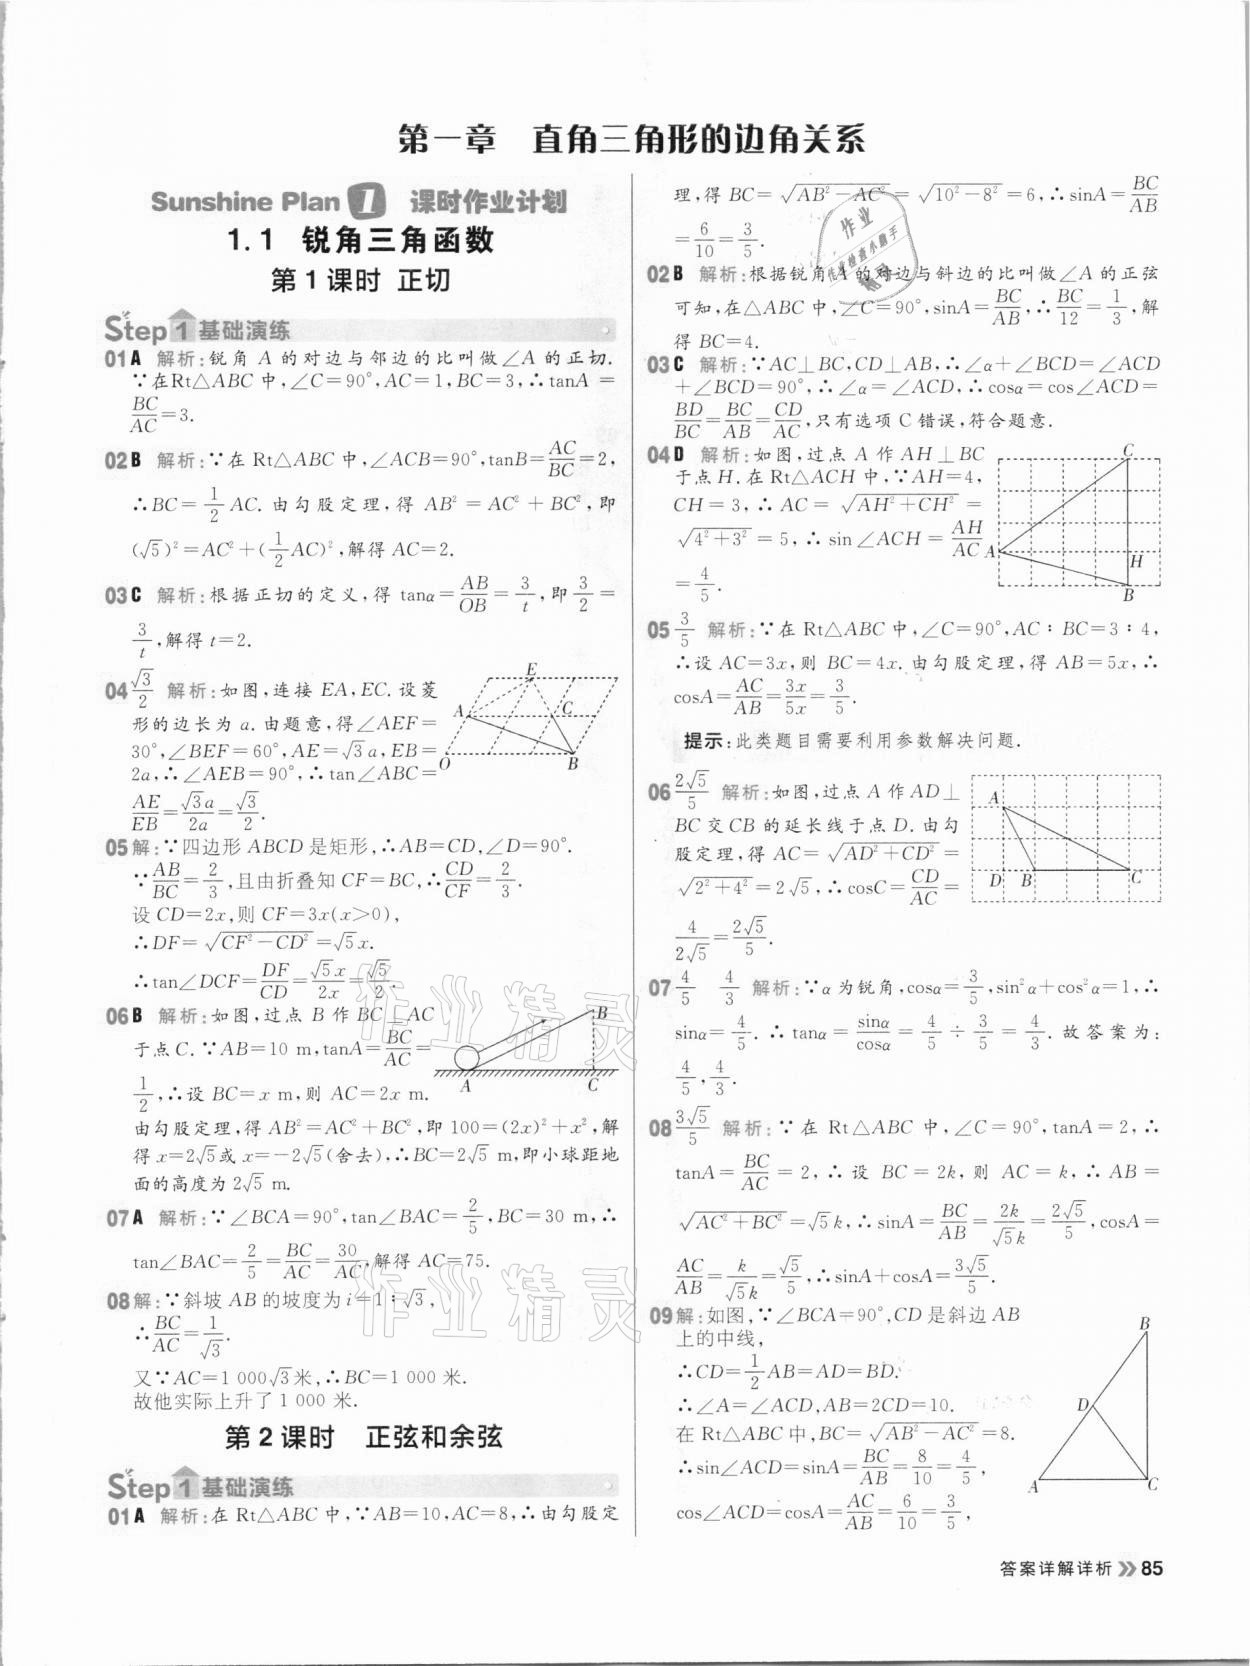 第一章 直角三角形的边角关系
Sunshine Plan 1 课时作业计划
1.1 锐角三角函数
第1课时 正切
Step 1 基础演练
01 A 解析:锐角 A 的对边与邻边的比叫做∠A 的正切.
∵在Rt△ABC 中,∠C=90°,AC=1,BC=3,∴tanA=
BC/AC=3.
02 B 解析:∵在 Rt△ABC 中,∠ACB=90°,tanB=AC/BC=2,
∴BC=1/2 AC. 由勾股定理,得 AB²=AC²+BC²,即
(√5)²=AC²+(1/2 AC)²,解得 AC=2.
03 C 解析:根据正切的定义,得 tanα=AB/OB=3/t,即 3/2=
3/t,解得 t=2.
04 √3/2 解析:如图,连接 EA,EC. 设菱
形的边长为 a. 由题意,得∠AEF=
30°,∠BEF=60°,AE=√3a,EB=
2a,∴∠AEB=90°,∴tan∠ABC=
AE/EB=√3a/2a=√3/2.
E
A
C
O
B
05 解:∵四边形 ABCD 是矩形,∴AB=CD,∠D=90°.
∵AB/BC=2/3,且由折叠知 CF=BC,∴CD/CF=2/3.
设 CD=2x,则 CF=3x(x>0),
∴DF=√(CF²-CD²)=√5x.
∴tan∠DCF=DF/CD=√5x/2x=√5/2.
06 B 解析:如图,过点 B 作 BC⊥AC
于点 C. ∵AB=10 m,tanA=BC/AC=
1/2,∴设 BC=x m,则 AC=2x m.
B
A
C
由勾股定理,得 AB²=AC²+BC²,即 100=(2x)²+x²,解
得 x=2√5或 x=-2√5(舍去),∴BC=2√5 m,即小球距地
面的高度为 2√5 m.
07 A 解析:∵∠BCA=90°,tan∠BAC=2/5,BC=30 m,∴
tan∠BAC=2/5=BC/AC=30/AC,解得 AC=75.
08 解:∵斜坡 AB 的坡度为 i=1∶√3,
∴BC/AC=1/√3.
又∵AC=1 000√3米,∴BC=1 000 米.
故他实际上升了 1 000 米.
第2课时 正弦和余弦
Step 1 基础演练
01 A 解析:在 Rt△ABC 中,∵AB=10,AC=8,∴由勾股定
理,得 BC=√(AB²-AC²)=√(10²-8²)=6,∴sinA=BC/AB
=6/10=3/5.
02 B 解析:根据锐角A 的对边与斜边的比叫做∠A 的正弦
可知,在△ABC 中,∠C=90°,sinA=BC/AB,∴BC/12=1/3,解
得 BC=4.
03 C 解析:∵AC⊥BC,CD⊥AB,∴∠α+∠BCD=∠ACD
+∠BCD=90°,∴∠α=∠ACD,∴cosα=cos∠ACD=
BD/BC=BC/AB=CD/AC,只有选项 C 错误,符合题意.
04 D 解析:如图,过点 A 作 AH⊥BC
于点 H. 在 Rt△ACH 中,∵AH=4,
CH=3,∴AC=√(AH²+CH²)=
√(4²+3²)=5,∴sin∠ACH=AH/AC
=4/5.
C
A
H
B
05 3/5 解析:∵在 Rt△ABC 中,∠C=90°,AC∶BC=3∶4,
∴设 AC=3x,则 BC=4x. 由勾股定理,得 AB=5x,∴
cosA=AC/AB=3x/5x=3/5.
提示:此类题目需要利用参数解决问题.
06 2√5/5 解析:如图,过点 A 作 AD⊥
BC交CB 的延长线于点 D. 由勾
股定理,得 AC=√(AD²+CD²)=
√(2²+4²)=2√5,∴cosC=CD/AC=
4/2√5=2√5/5.
A
D
B
C
07 4/5 4/3 解析:∵α为锐角,cosα=3/5,sin²α+cos²α=1,∴
sinα=4/5. ∴tanα=sinα/cosα=4/5÷3/5=4/3. 故答案为:
4/5,4/3.
08 3√5/5 解析:∵在 Rt△ABC 中,∠C=90°,tanA=2,∴
tanA=BC/AC=2,∴设 BC=2k,则 AC=k,∴AB=
√(AC²+BC²)=√5k,∴sinA=BC/AB=2k/√5k=2√5/5,cosA=
AC/AB=k/√5k=√5/5,∴sinA+cosA=3√5/5.
09 解:如图,∵∠BCA=90°,CD 是斜边 AB
上的中线,
∴CD=1/2 AB=AD=BD.
∴∠A=∠ACD,AB=2CD=10.
在 Rt△ABC 中,BC=√(AB²-AC²)=8.
∴sin∠ACD=sinA=BC/AB=8/10=4/5,
cos∠ACD=cosA=AC/AB=6/10=3/5,
B
D
A
C
作业精灵
作业精灵
答案详解详析 85